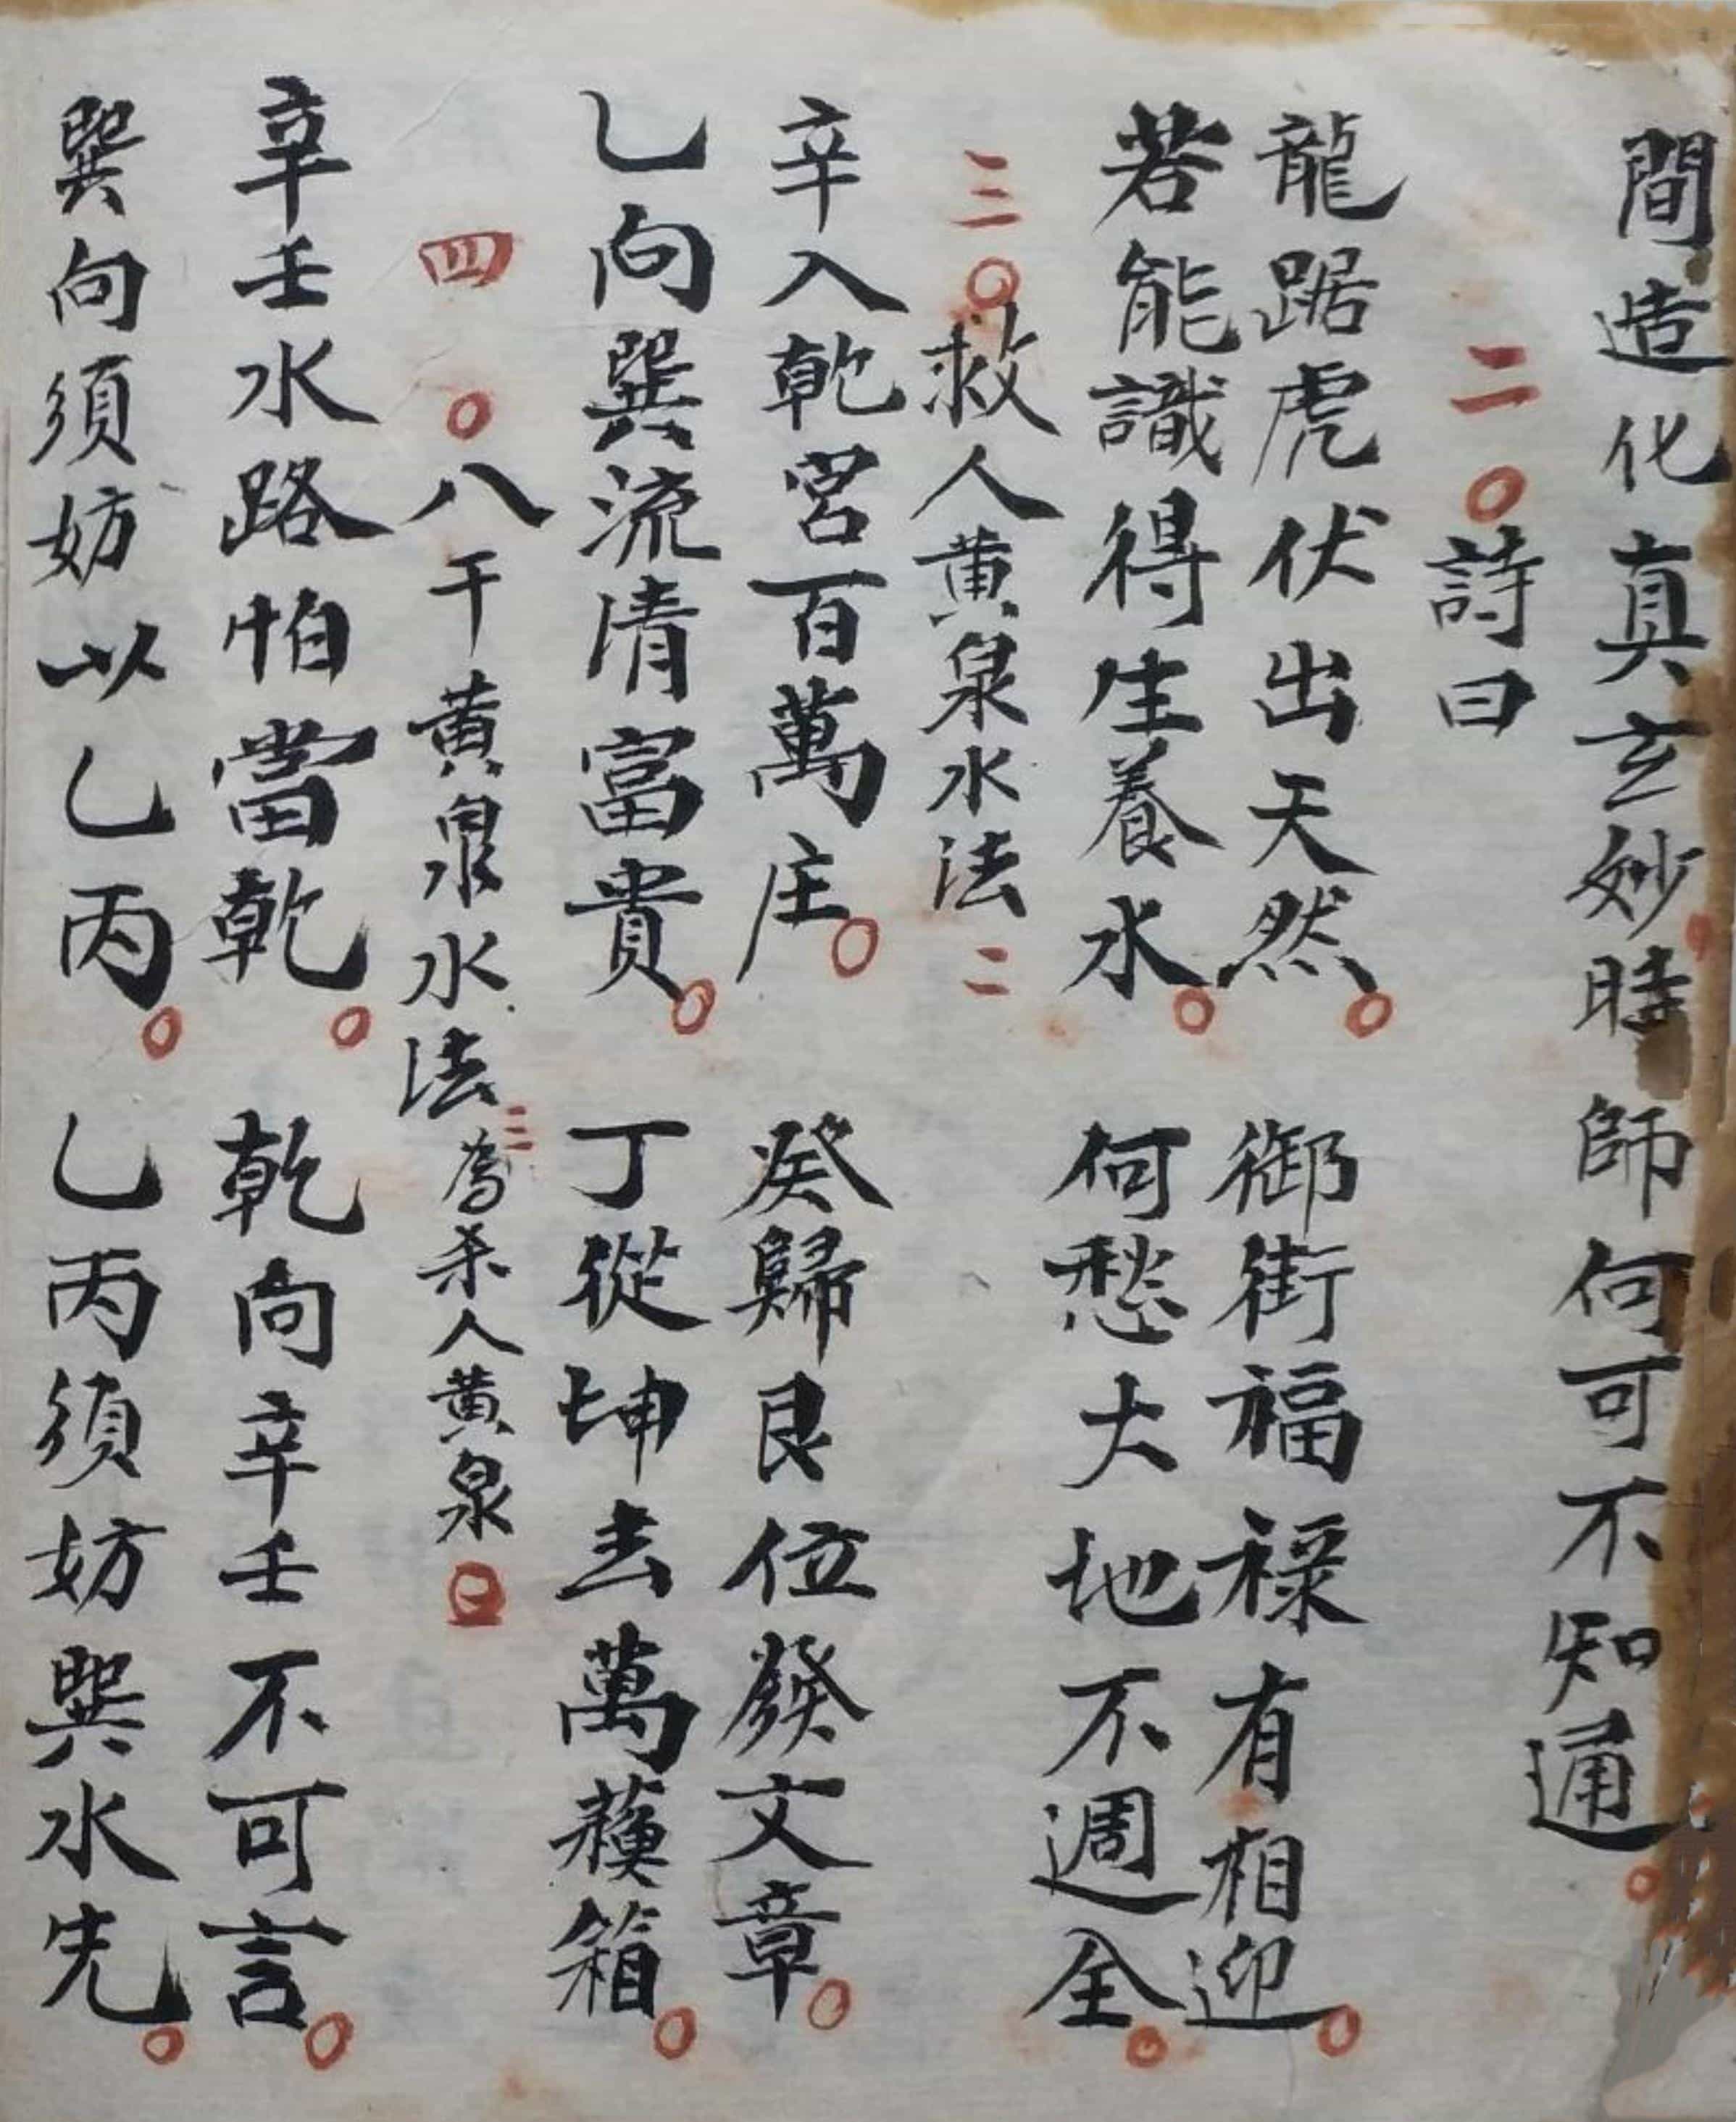 間造化真玄妙時師何可不知通
二〇詩曰
龍踞虎伏出天然御街福祿有相迎
若能識得生養水何愁大地不週全
三〇救人黃泉水法二
辛入乾宮百萬庄癸歸艮位發文章
乙向巽流清富貴丁從坤去萬蘓箱
四〇八干黃泉水法三為杀人黃泉
辛壬水路怕當乾乾向辛壬不可言
巽向須妨以乙丙乙丙須妨巽水先